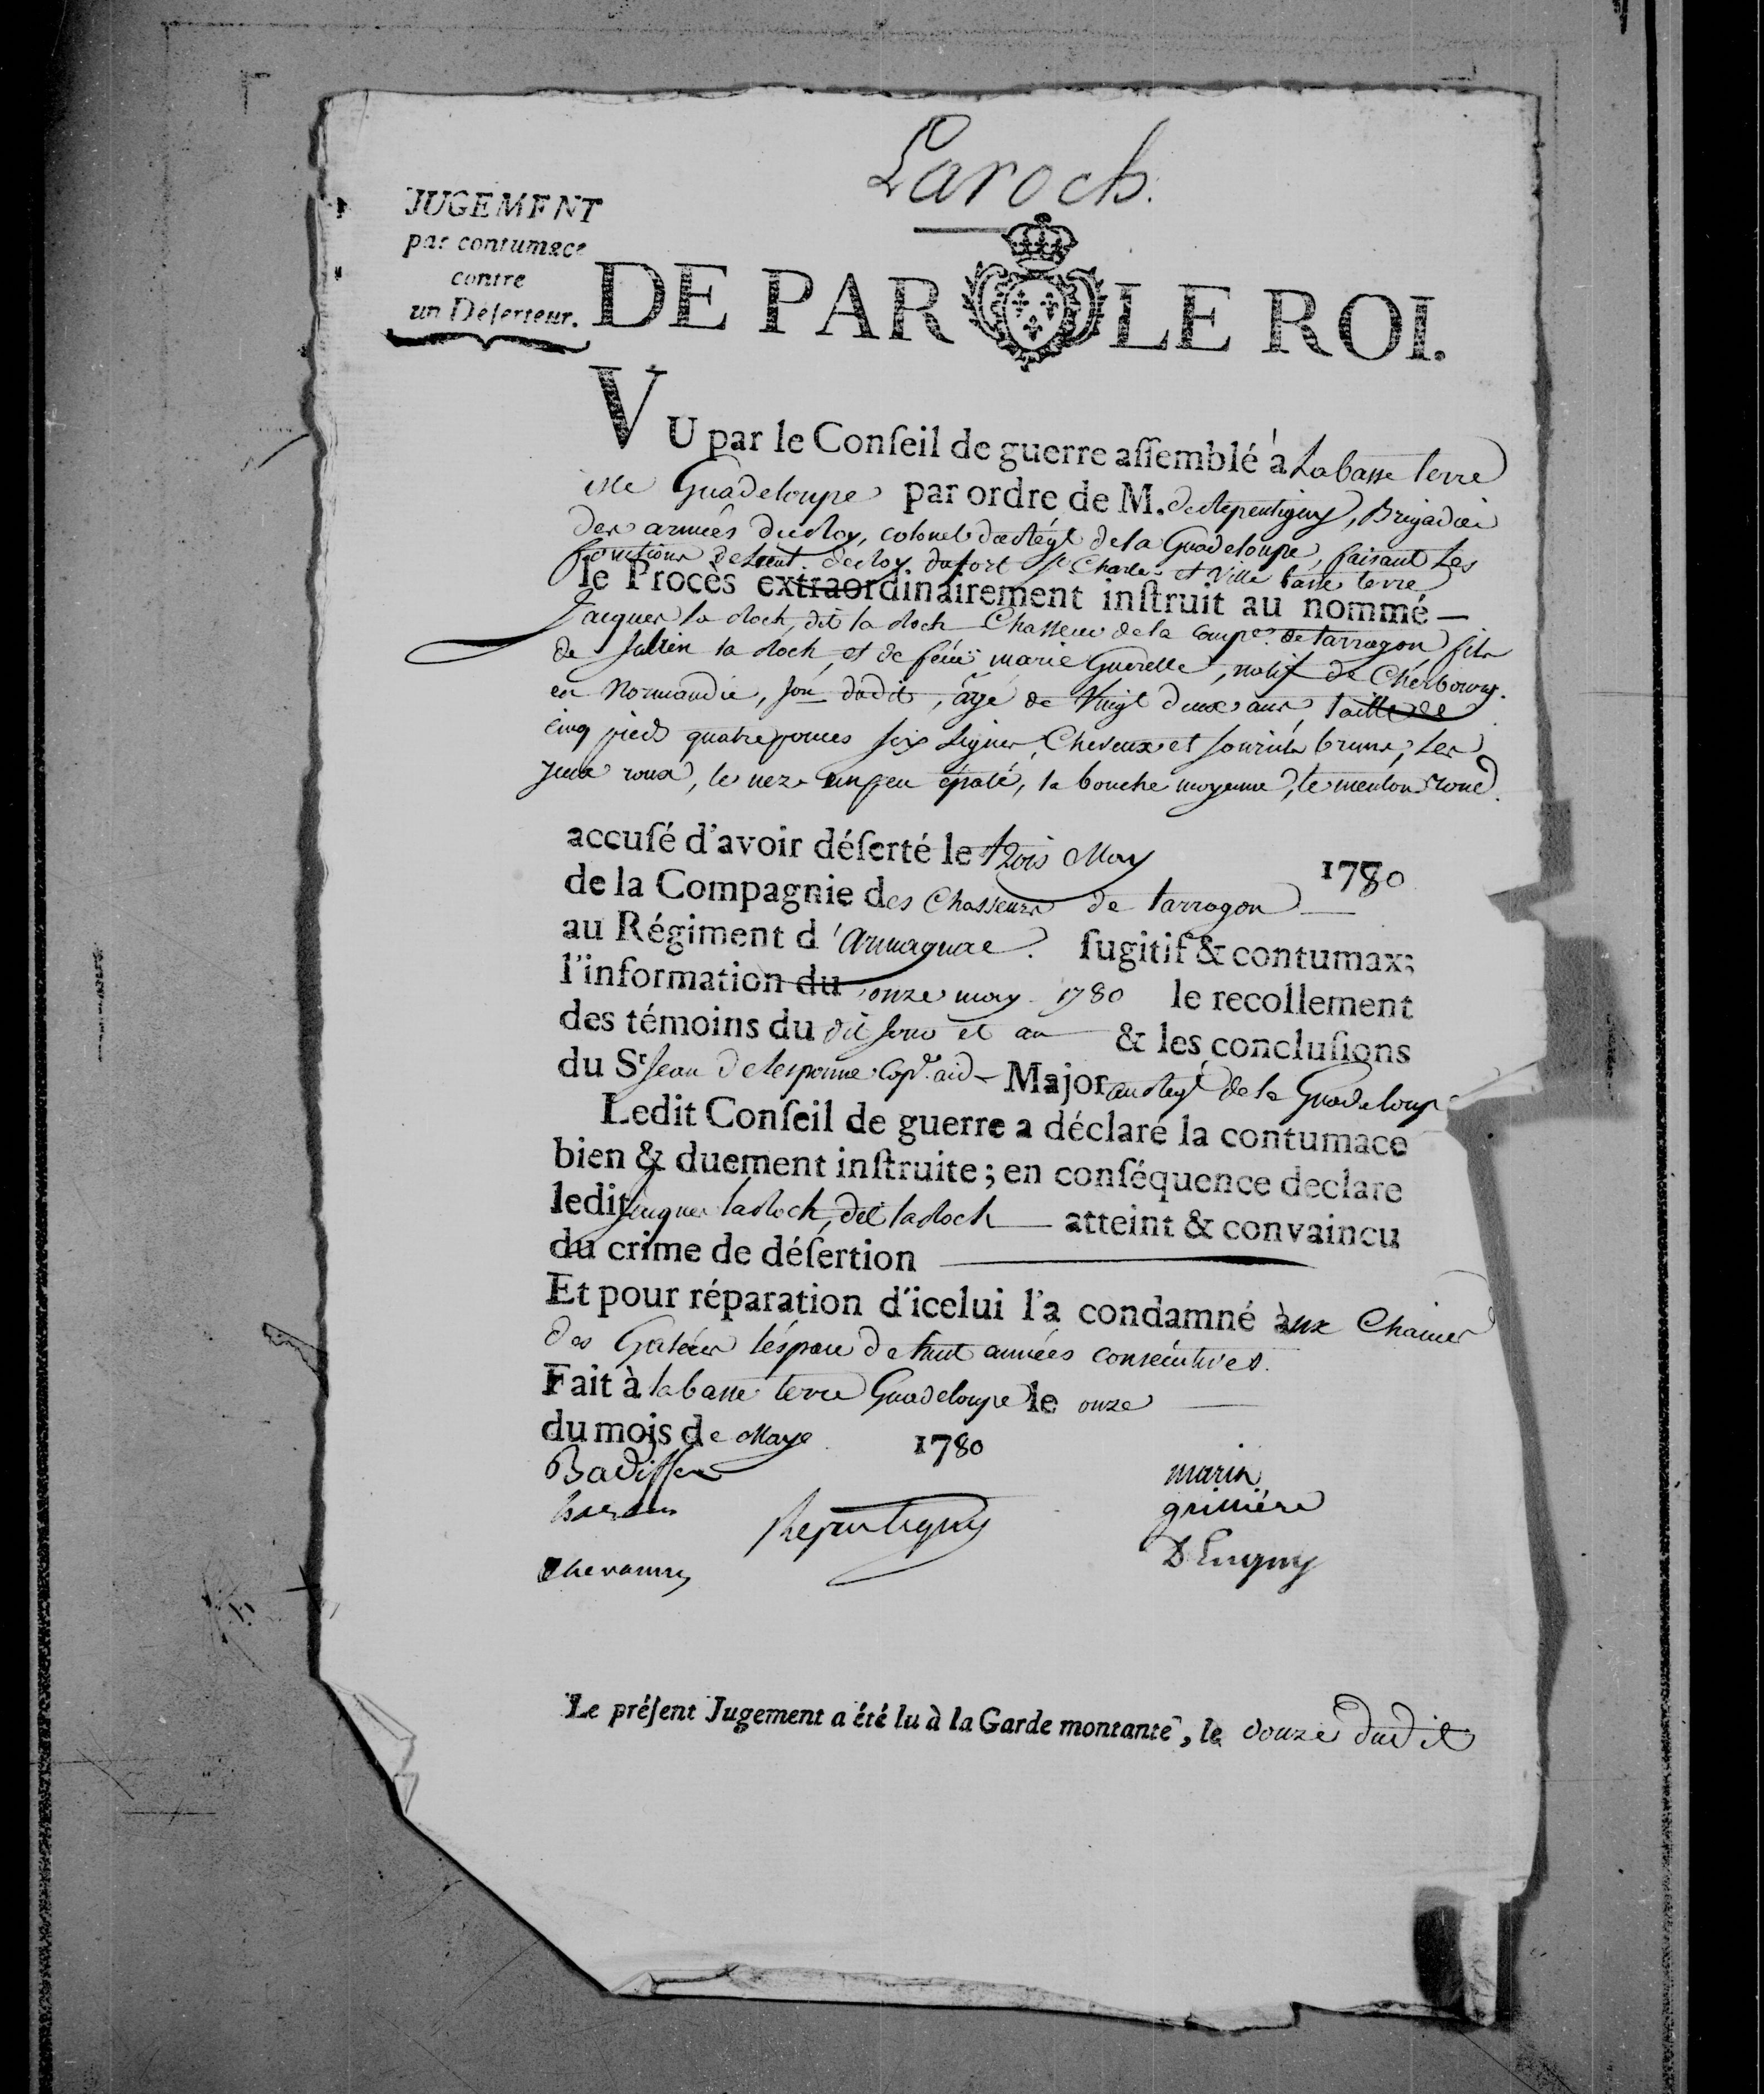 Laroch.
JUGEMENT
par contumace
contre
un Déſerteur.
DE PAR LE ROI.
VU par le Conſeil de guerre aſſemblé à Labasse terre
isle Guadeloupe par ordre de M. de Repentigny, Brigadier
des armées du Roy, colonel du Régt de la Guadeloupe, faisant les
fonctions de Lieut. de Roy du fort St Charles et Ville basse terre
le Procès extraordinairement inſtruit au nommé —
Jacques la Roch, dit la Roch Chasseur de la compe. de tarragon fils
de Julien la Roch, et de feüe marie Guerelle, natif de Cherbourg.
en Normandie, jon dudit, âgé de Vingt deux ans, taille de
cinq pieds quatre pouces six Lignes, Cheveux et sourcils bruns, les
yeux roux, le nez un peu épaté, la bouche moyenne, le menton rond.
accuſé d'avoir déſerté le trois May 1780
de la Compagnie des Chasseurs de tarragon —
au Régiment d'armagnac. fugitif & contumax;
l'information du onze may 1780 le recollement
des témoins du dit jour et an — & les concluſions
du Sr Jean Delesponne Capne. aid- Major au Regt de la Guadeloupe
Ledit Conſeil de guerre a déclaré la contumace
bien & duement inſtruite; en conſéquence declare
ledit jacques la Roch, dit la Roch — atteint & convaincu
du crime de déſertion —
Et pour réparation d'icelui l'a condamné aux Chaines
des Galéres l'éspace de huit années consécutives.
Fait à la basse terre Guadeloupe le onze —
du mois de Maye 1780
marin
grillière
Repentigny
D'Eugny
Le préſent Jugement a été lu à la Garde montante, le douze dudit